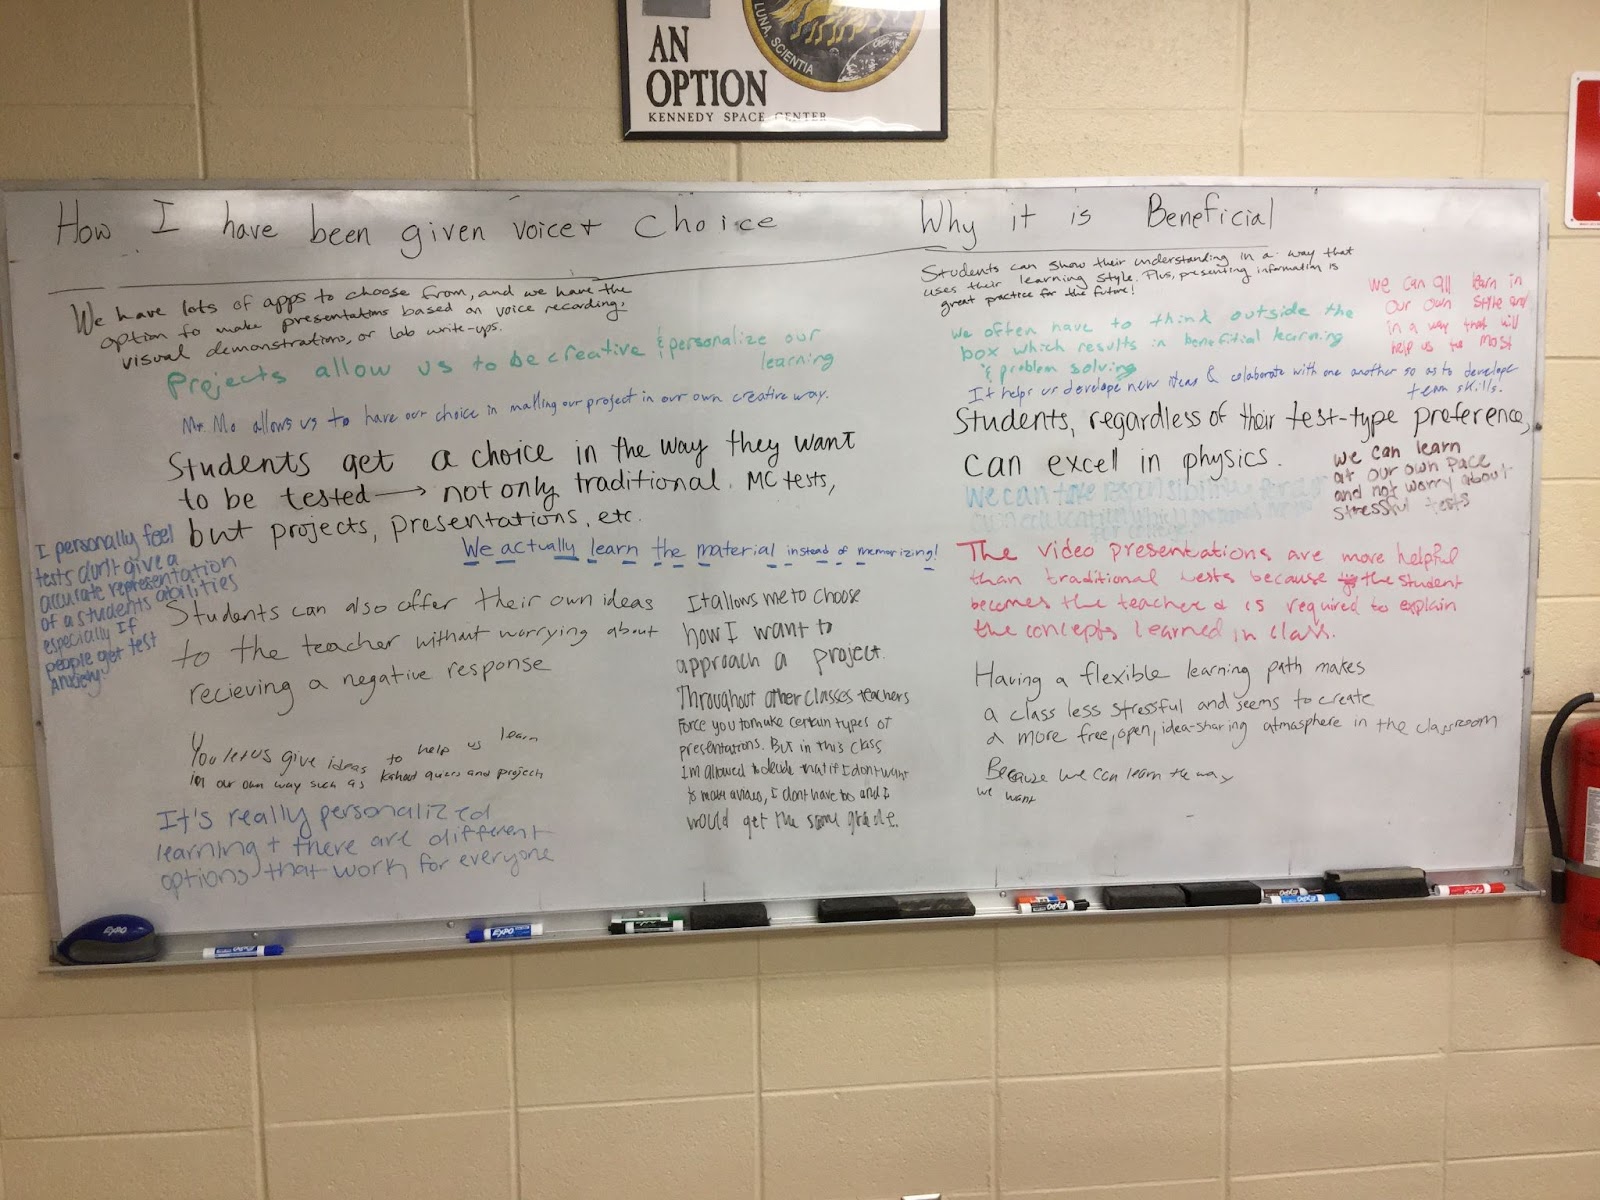 AN
OPTION
KENNEDY SPACE CENTER
LUNA, SCIENTIA
How I have been given voice + Choice
We have lots of apps to choose from, and we have the
option to make presentations based on voice recording,
visual demonstrations, or lab write-ups.
Projects allow us to be creative & personalize our
learning
Mr. Mo allows us to have our choice in making our project in our own creative way.
Students get a choice in the way they want
to be tested → not only traditional MC tests,
but projects, presentations, etc.
We actually learn the material instead of memorizing!
I personally feel
tests don't give a
accurate representation
of a students abilities
especially If
people get test
Anxiety
Students can also offer their own ideas
to the teacher without worrying about
recieving a negative response
You let us give ideas to help us learn
in our own way such as kahoot quizes and projects
It's really personalized
learning + there are different
options that work for everyone
It allows me to choose
how I want to
approach a project.
Throughout other classes teachers
Force you to make certain types of
presentations. But in this class
I'm allowed to decide that if I dont want
to make a video, I dont have too and I
would get the same grade.
Why it is Beneficial
Students can show their understanding in a way that
uses their learning style. Plus, presenting information is
great practice for the future!
we can all learn in
our own style and
in a way that will
help us the most
We often have to think outside the
box which results in benefitial learning
& problem solving
It helps us develope new ideas & colaborate with one another so as to develope
team skills.
Students, regardless of their test-type preference,
can excel in physics.
we can learn
at our own pace
and not worry about
stressful tests
We can take responsibility for our
own education which
The video presentations are more helpful
than traditional tests because the student
becomes the teacher & is required to explain
the concepts learned in class.
Having a flexible learning path makes
a class less stressful and seems to create
a more free, open, idea-sharing atmasphere in the classroom
Because we can learn the way
we want
EXPO
EXPO